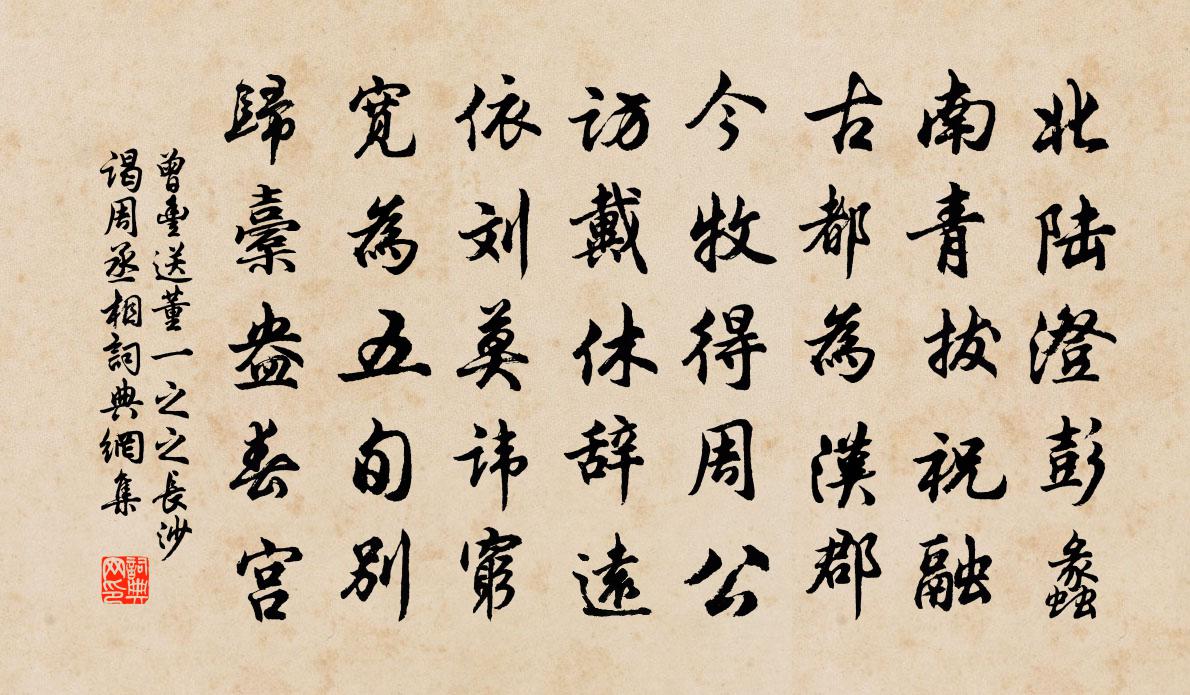 北陆澄彭蠡
南青拔祝融
古都為漢郡
今牧得周公
访戴休辞遠
依刘莫讳窮
寛為五旬别
歸橐盎春宫
曾豐送董一之之長沙
谒周丞相詞典網集
詞典網印